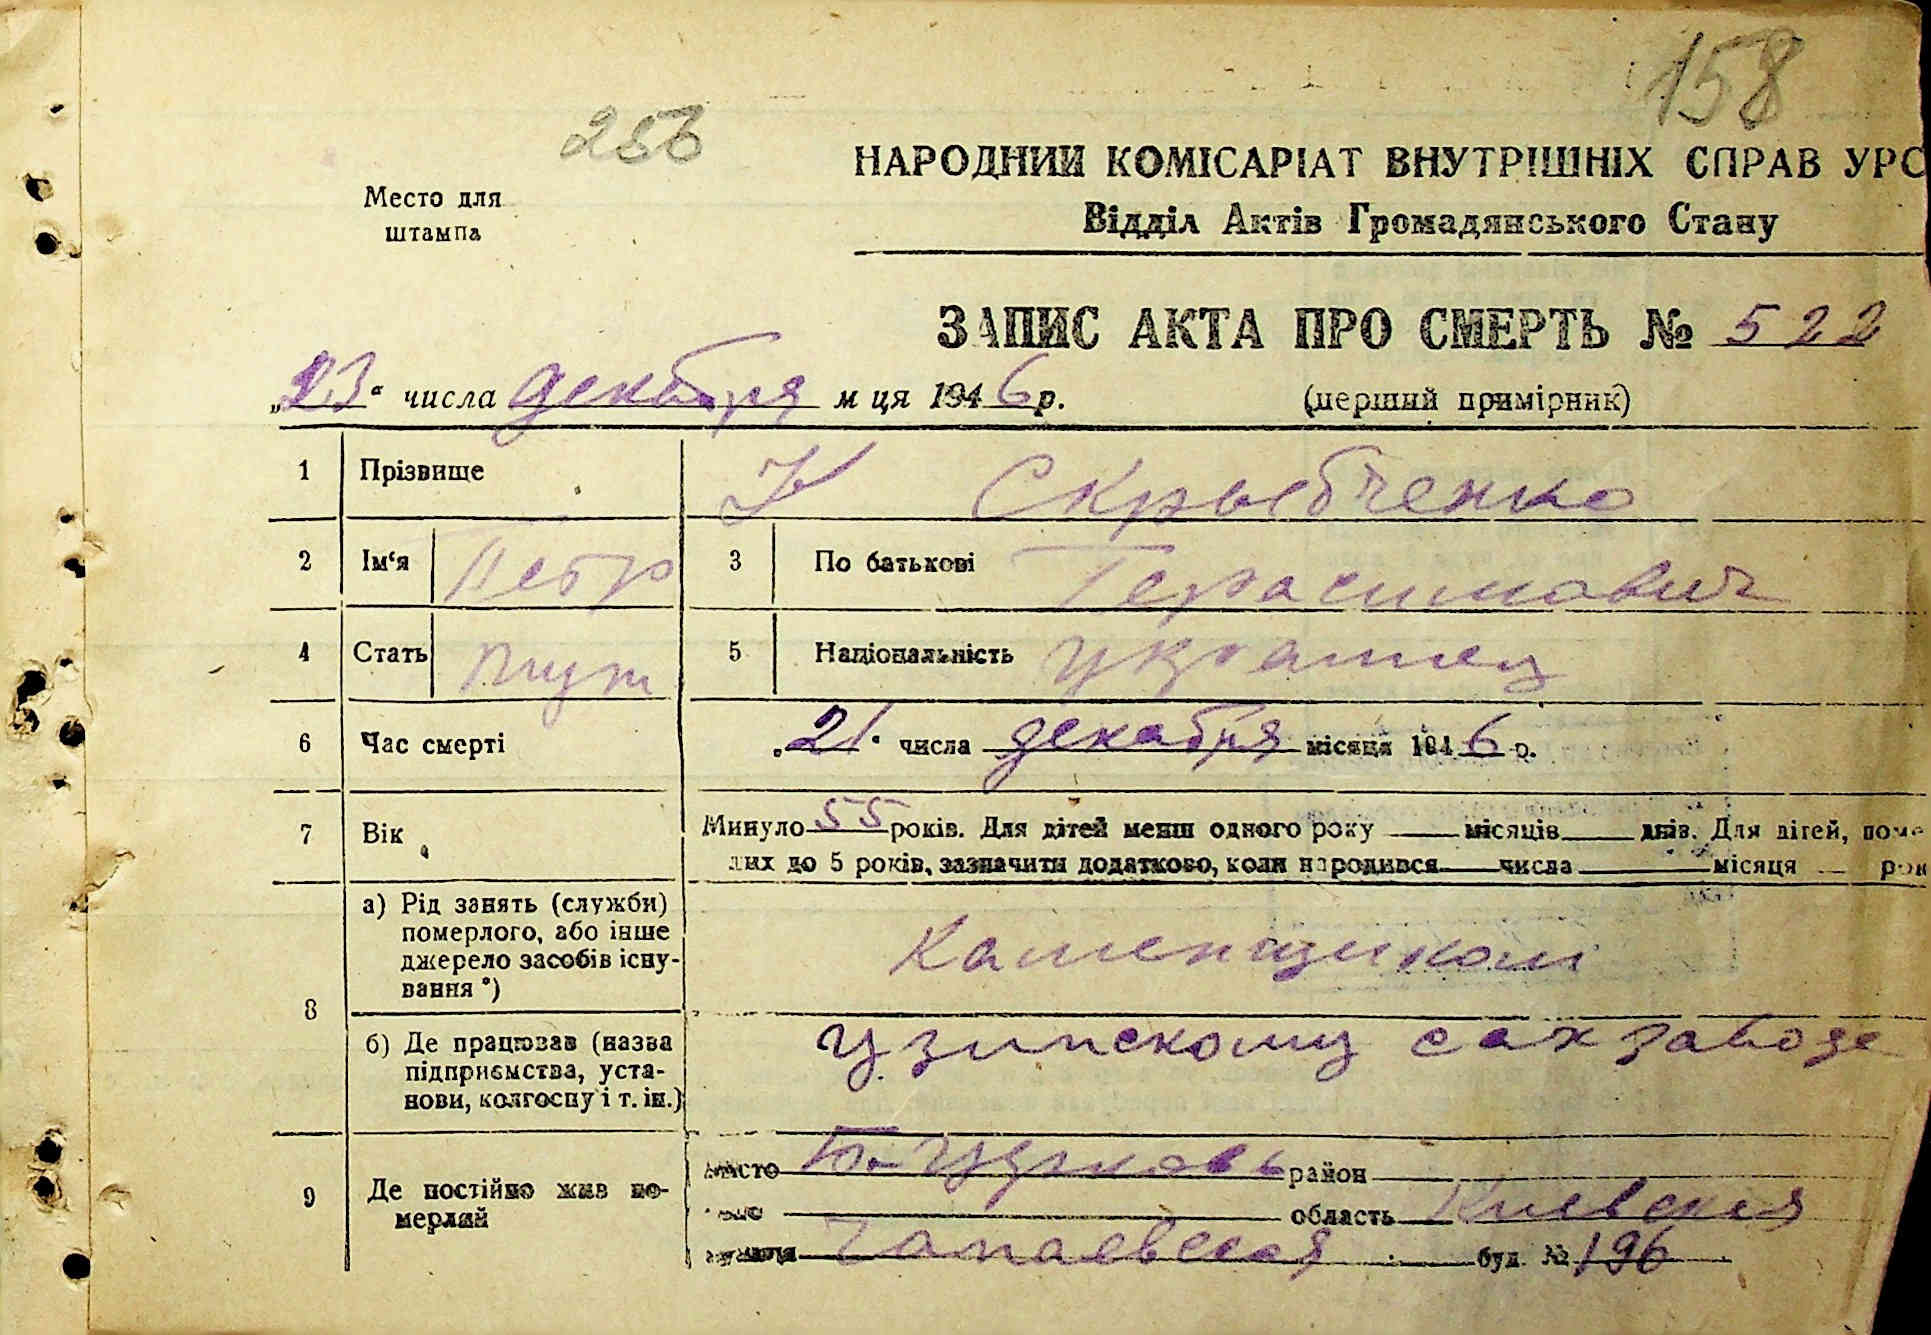 158
253
Место для
штампа
НАРОДНИЙ КОМІСАРІАТ ВНУТРІШНІХ СПРАВ УРС
Відділ Актів Громадянського Стану
ЗАПИС АКТА ПРО СМЕРТЬ № 522
„23“ числа декабря м ця 1946 р. (перший примірник)
1 Прізвище Скрыбченко
2 Ім‘я Петр 3 По батькові Герасимович
4 Стать муж 5 Національність украинец
6 Час смерті „21“ числа декабря місяця 1946 р.
7 Вік Минуло 55 років. Для дітей менш одного року місяців днів. Для дітей, поме
лих до 5 років, зазначити додатково, коли народився числа місяця рок
8 а) Рід занять (служби)
померлого, або інше
джерело засобів існу-
вання *)
Каменщиком
б) Де працював (назва
підприємства, уста-
нови, колгоспу і т. ін.)
Узинскому сахзаводе
9 Де постійно жив по-
мерлий
місто Б-Церковь район
область Киевская
вулиця Чапаевская буд. № 196